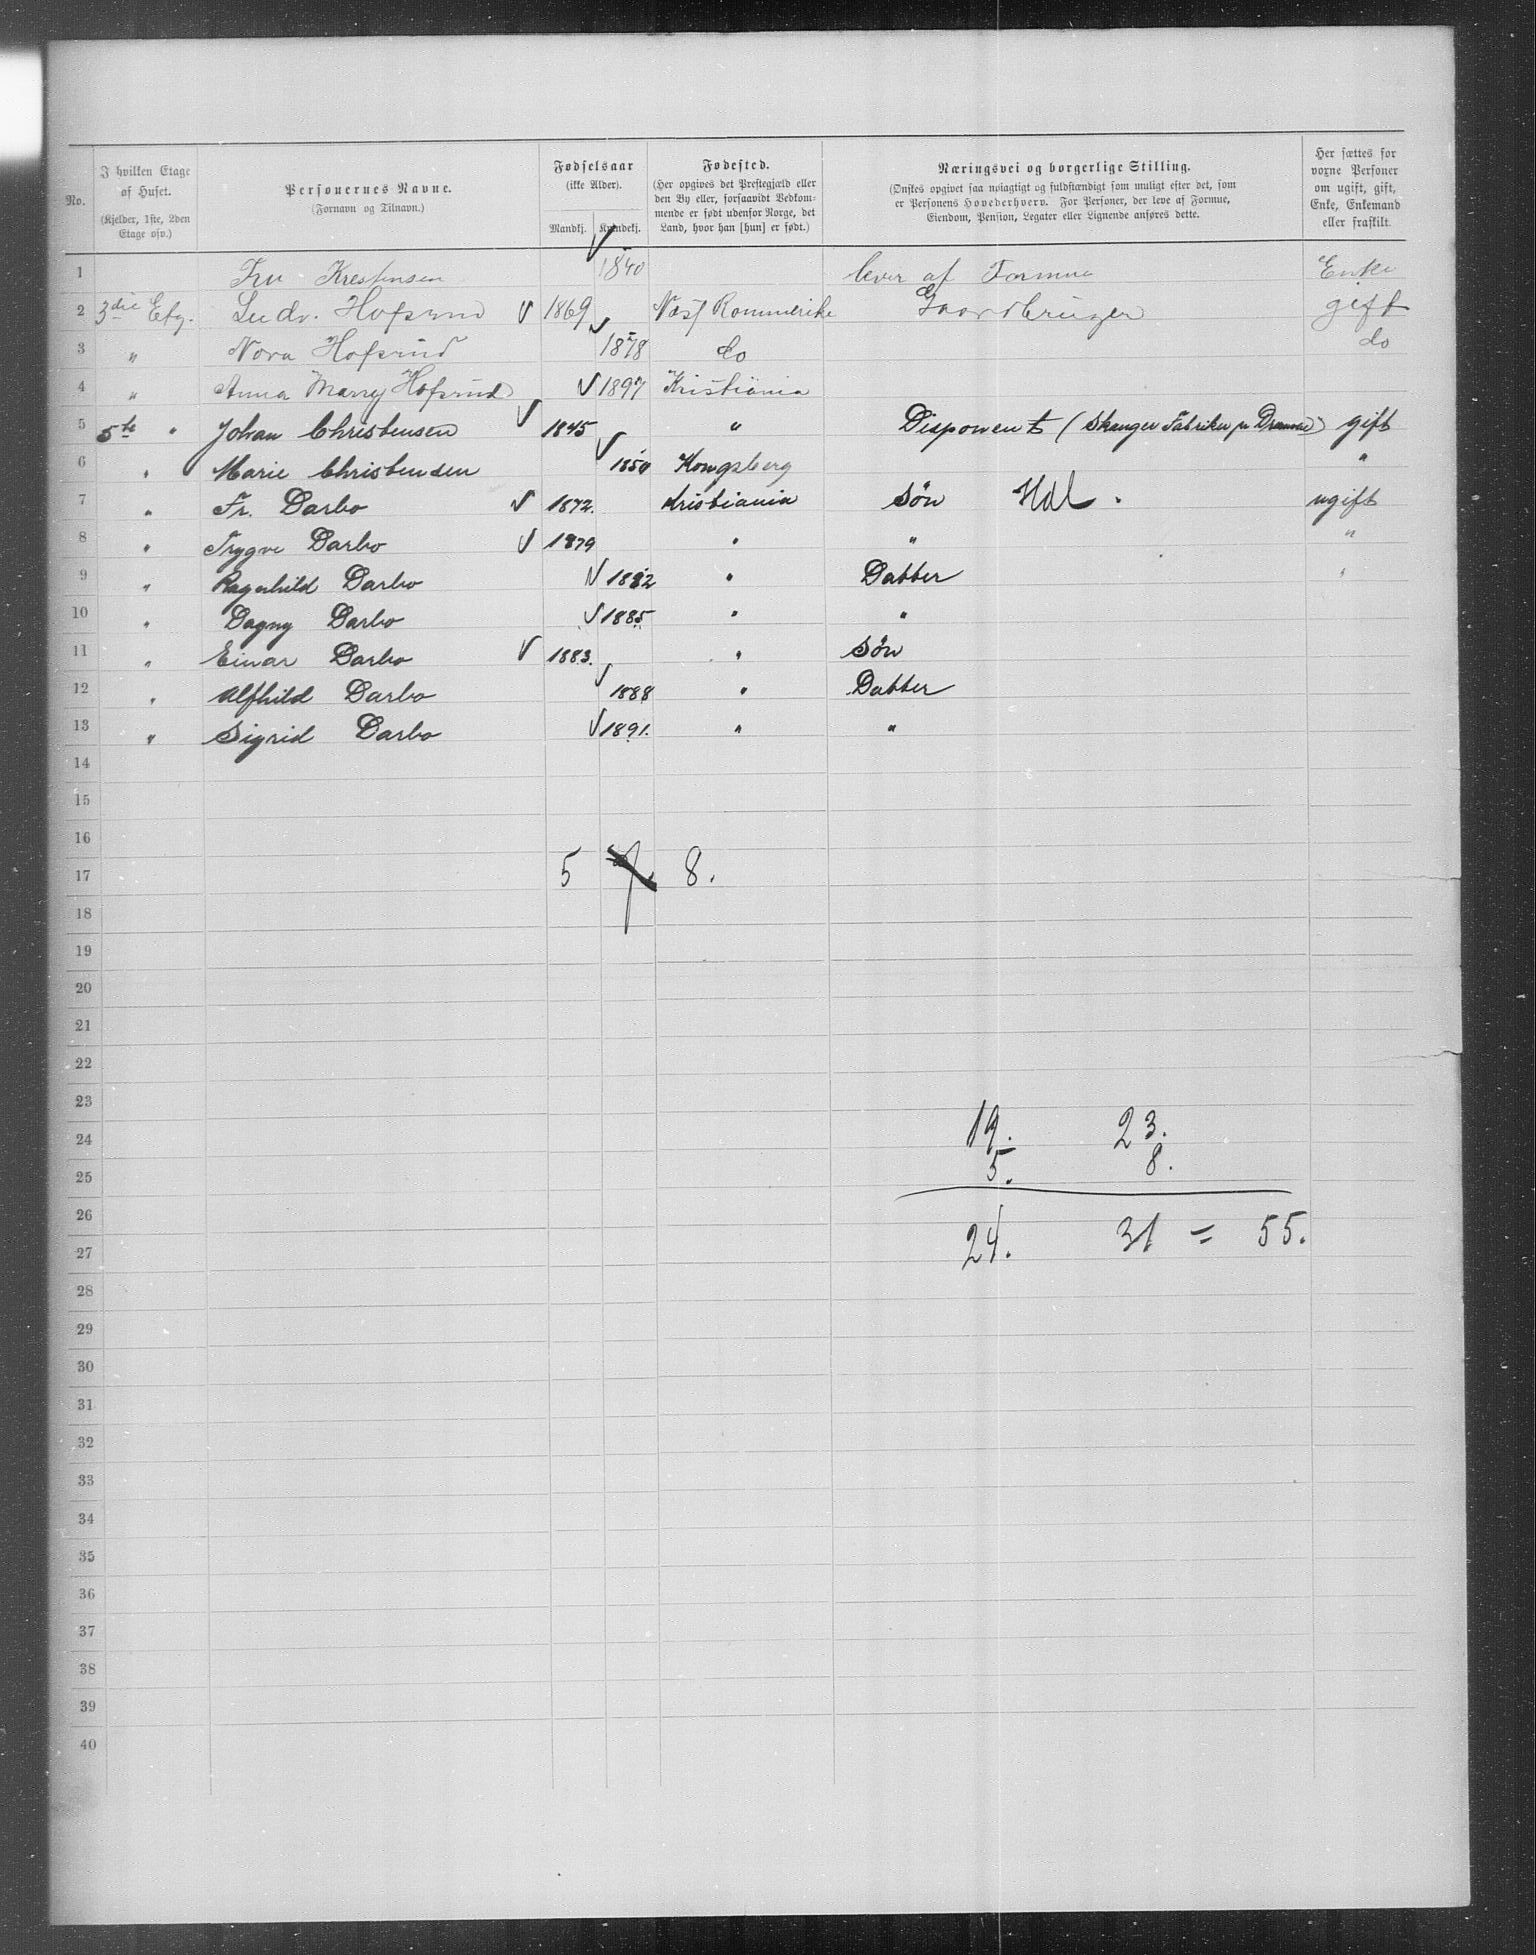 No. | I hvilken Etage af Huset. (Kjelder, 1ste, 2den Etage osv.) | Personernes Navne. (Fornavn og Tilnavn.) | Fødselsaar (ikke Alder). Mandkj. Kvindekj. | Fødested. (Her opgives det Prestegjæld eller den By eller, forsaavidt Vedkommende er født udenfor Norge, det Land, hvor han [hun] er født.) | Næringsvei og borgerlige Stilling. (Ønskes opgivet saa nøiagtigt og fuldstændigt som muligt efter det, som er Personens Hovederhverv. For Personer, der leve af Formue, Eiendom, Pension, Legater eller Lignende anføres dette.) | Her sættes for voxne Personer om ugift, gift, Enke, Enkemand eller fraskilt.
1 Fru Krestensen 1840 lever af Formue Enke
2 3die Etg. Ludv. Hofsrud 1869 Næs Rommerike Gaardbruger gift
3 " Nora Hofsrud 1878 do do
4 " Anna Marry Hofsrud 1897 Kristiania
5 5te " Johan Christensen 1845 " Disponent (Skanger Fabriker pr Drammen) gift
6 " Marie Christensen 1850 Kongsberg "
7 " Fr. Darbo 1872. Kristiania Søn Hdl. ugift
8 " Trygve Darbo 1879 " " "
9 " Ragnhild Darbo 1882 " Datter "
10 " Dagny Darbo 1885 " "
11 " Einar Darbo 1883. " Søn
12 " Alfhild Darbo 1888 " Datter
13 " Sigrid Darbo 1891. " "
14
15
16
17 5 8.
18
19
20
21
22
23
24 19. 23.
25 5. 8.
26
27 24. 31 = 55.
28
29
30
31
32
33
34
35
36
37
38
39
40